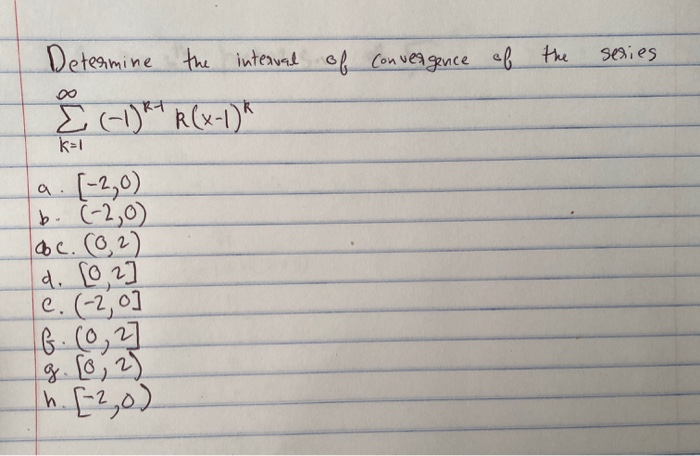 Determine the interval of convergence of the series
∞
Σ (-1)^{k-1} k(x-1)^k
k=1
a. [-2,0)
b. (-2,0)
c. (0,2)
d. [0,2]
e. (-2,0]
f. (0,2]
g. [0,2)
h. [-2,0)